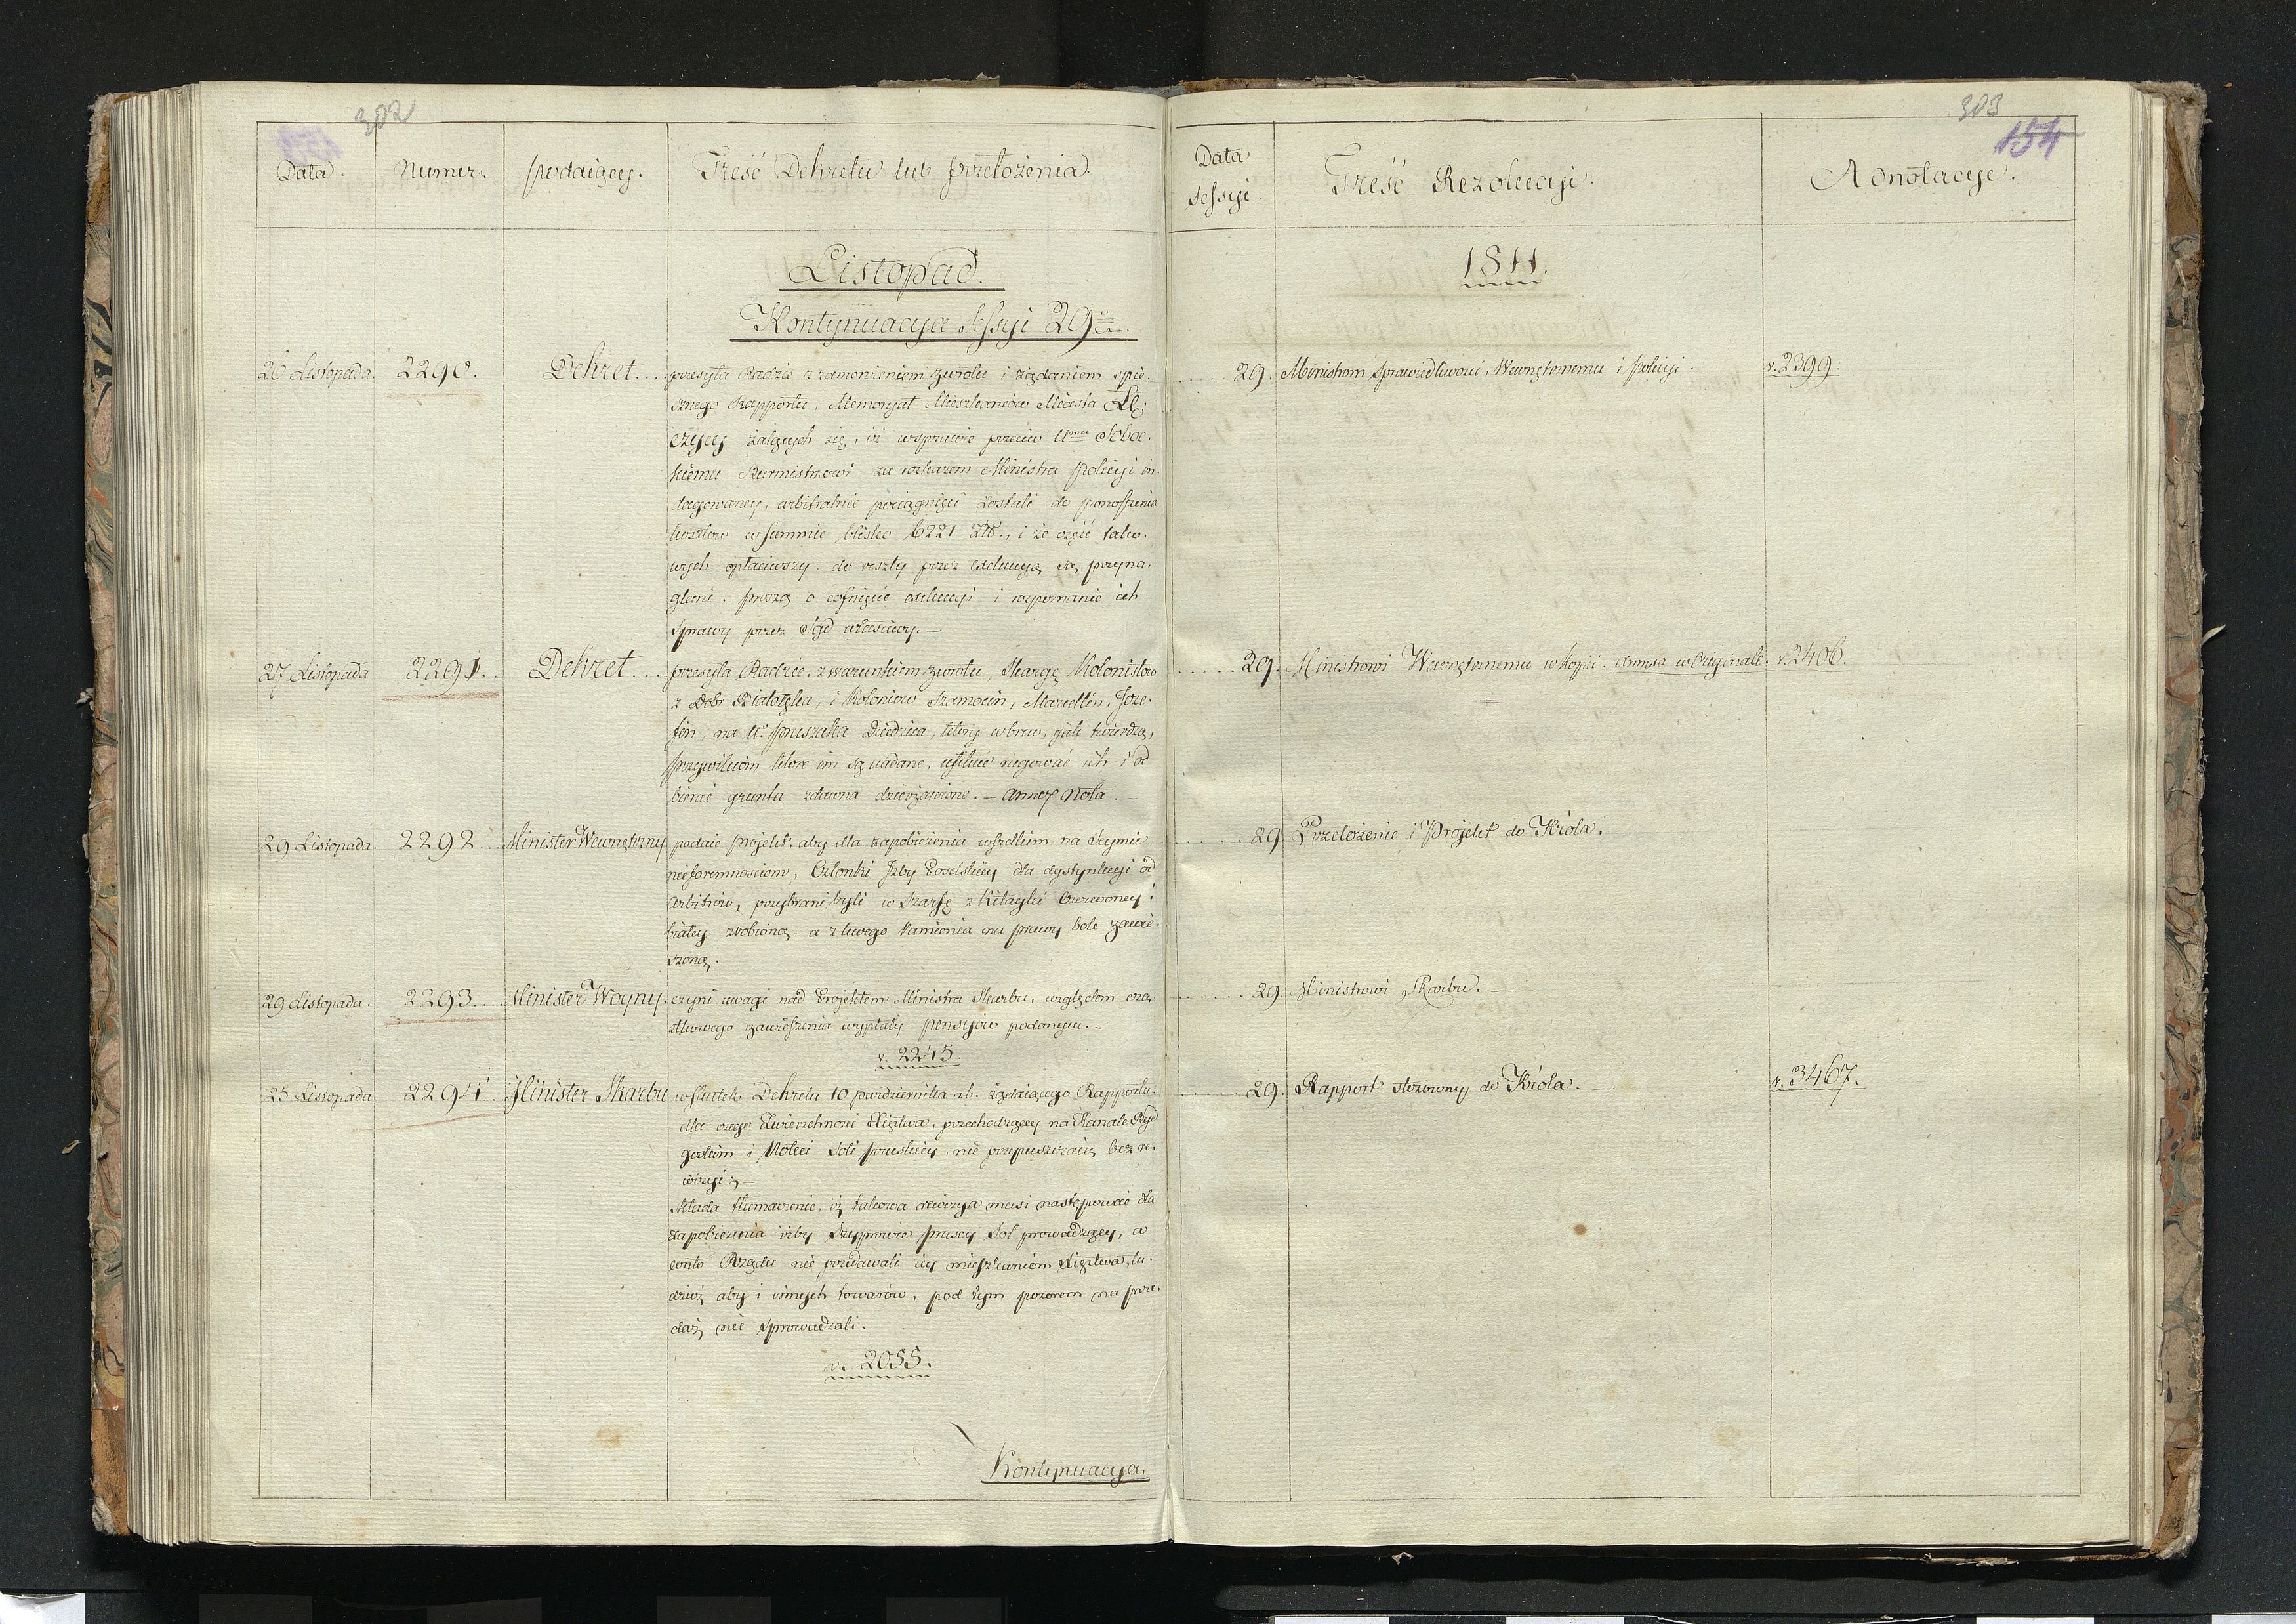 302
Data. Numer. podaiący. Treść Dekretu lub przełożenia.
Listopad.
Kontynuacya Sessyi 29
26 Listopada. 2290. Dekret
przesyła Radzie z zamowieniem zwrotu i żądaniem spie-
sznego Rapportu, Memoryał Mieszkańców Miasta Łę-
czycy żalących się, iż w sprawie przeciw Soboc-
kiemu Burmistrzowi za rozkazem Ministra Policyi in-
dagowaney, arbitralnie pociągnięci zostali do ponoszenia
kosztow w summie blisko 6221 Zł., i że część tako-
wych opłaciwszy do reszty przez exekucyą są przyna-
gleni. proszą o cofnięcie exekucyi i rozpoznanie ich
Sprawy przez Sąd właściwy. —
27 Listopada 2291. Dekret
przesyła Radzie, z warunkiem zwrotu, Skargę Kolonistow
z Dobr Białołęka, i Koloniow Szamocin, Marcellin, Joze-
fin, na Ur. Pruszaka Dziedzica, ktory wbrew, jak twierdzą,
przywileiom ktore im są nadane, usiłuie rugować ich i od
bierać grunta zdawna dzierżawione. — Annex Nota. —
29 Listopada. 2292. Minister Wewnętrzny
podaie projekt, aby dla zapobieżenia wszelkim na Seymie
nieforemnościom, Członki Izby Poselskiey dla dystynkcyi od
Arbitrów, przybrani byli w Szarfę z Kitayki Czerwoney i
białey zrobioną, a z lewego ramienia na prawy bok zawie-
szoną.
29 Listopada. 2293. Minister Woyny
czyni uwagi nad Projektem Ministra Skarbu, względem czą-
stkowego zawieszenia wypłaty pensyiow podanym. —
v. 2245.
25 Listopada 2294. Minister Skarbu
w skutek Dekretu 10 pazdziernika r.b. żądaiącego Rapportu:
dla czego Zwierzchność Xięstwa, przechodzącey na Kanale Byd
goskim i Noteci Soli pruskiey, nie przepuszczaią bez re-
wizyi; —
Składa tłumaczenie, iż takowa rewizya musi następować dla
zapobieżenia iżby Szyprowie pruscy Sol prowadzący, a
conto Rządu nie przedawali iey mieszkańcom Xięstwa, tu-
dzież aby i innych towarów, pod tym pozorem na prze-
daż nie sprowadzali.
v. 2055.
Kontynuacya.
303
154
Data Sessyi. Treść Rezolucyi. Annotacye.
1811.
29. Ministrom Sprawiedliwości, Wewnętrznemu i Policyi. v. 2399.
29. Ministrowi Wewnętrznemu w kopii. annexa w Originale. v. 2406.
29. Przełożenie i Projekt do Króla.
29. Ministrowi Skarbu. —
29. Rapport stosowny do Króla. — v. 3467.